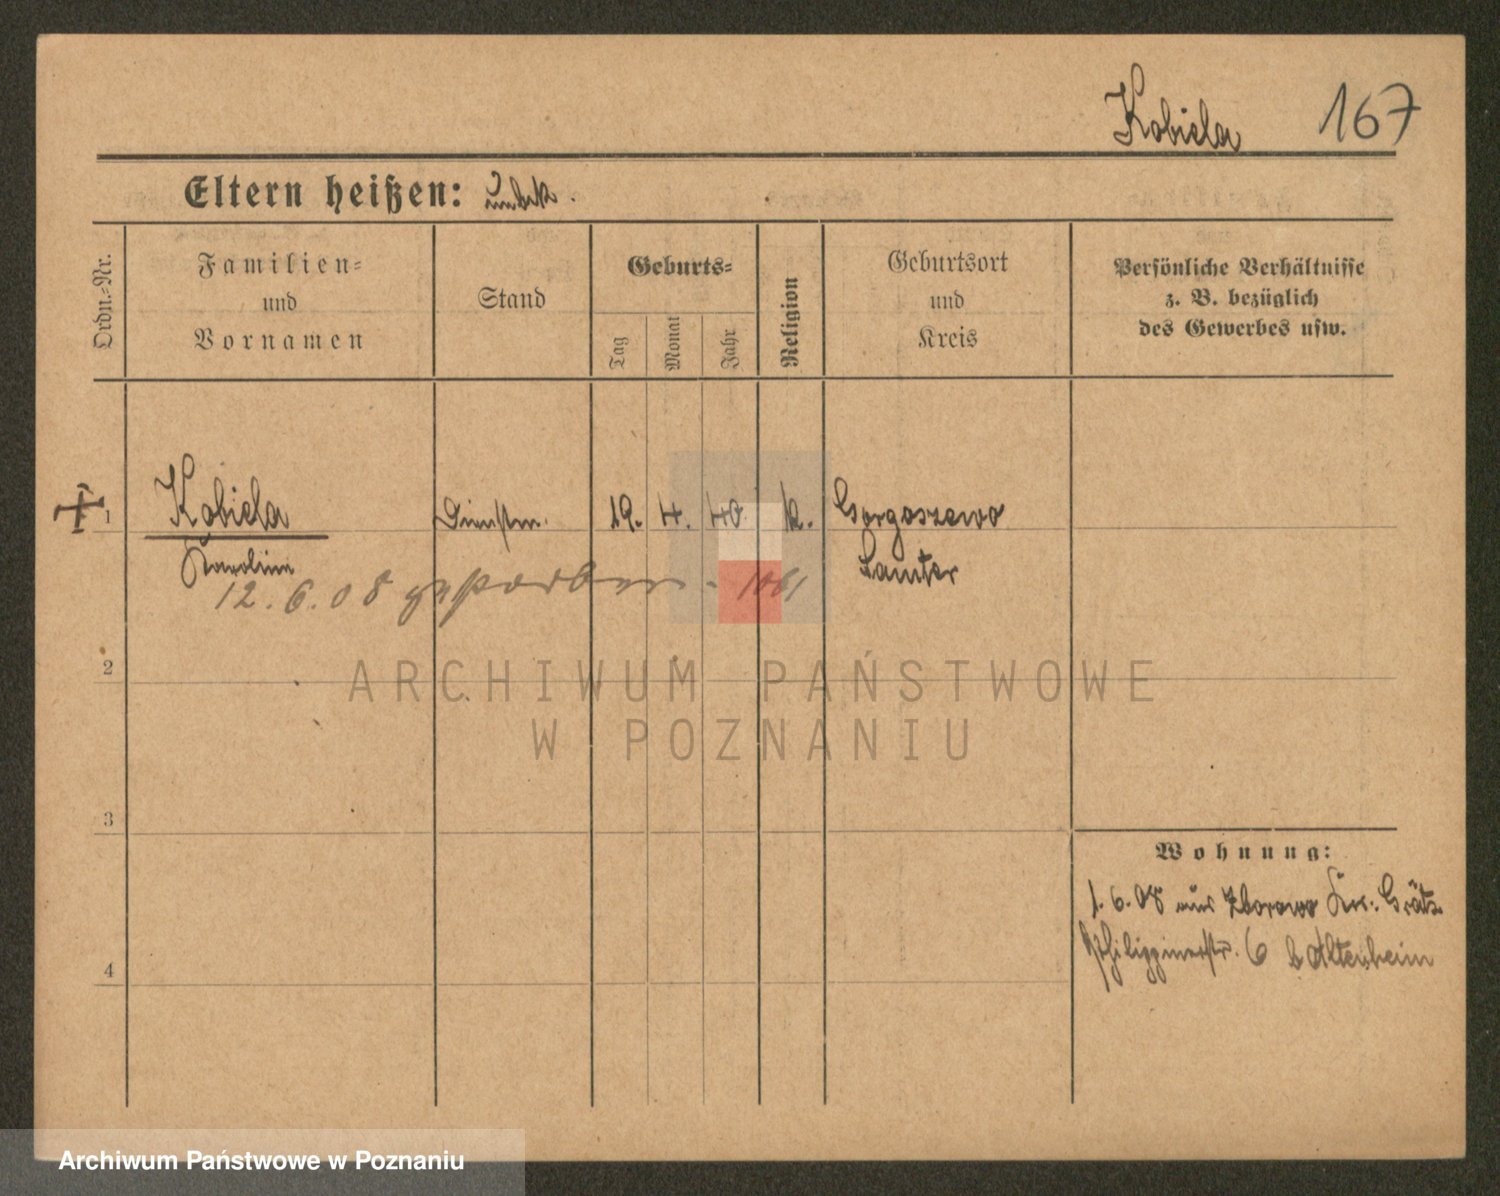 Kobiela 167
Eltern heißen: unbek.
Ordn.=Nr.
Familien=
und
Vornamen
Stand
Geburts=
Tag
Monat
Jahr
Religion
Geburtsort
und
Kreis
Persönliche Verhältnisse
z. B. bezüglich
des Gewerbes usw.
1 Kobiela 19. 4. 40. k. Gorgoszewo
Karoline Samter
12.6.08 gestorben - 1061
2
3
4
Wohnung:
1. 6. 08 aus Zborowo Kr. Grätz
Philippinerstr. 6 b Altenheim
ARCHIWUM PAŃSTWOWE
W POZNANIU
Archiwum Państwowe w Poznaniu